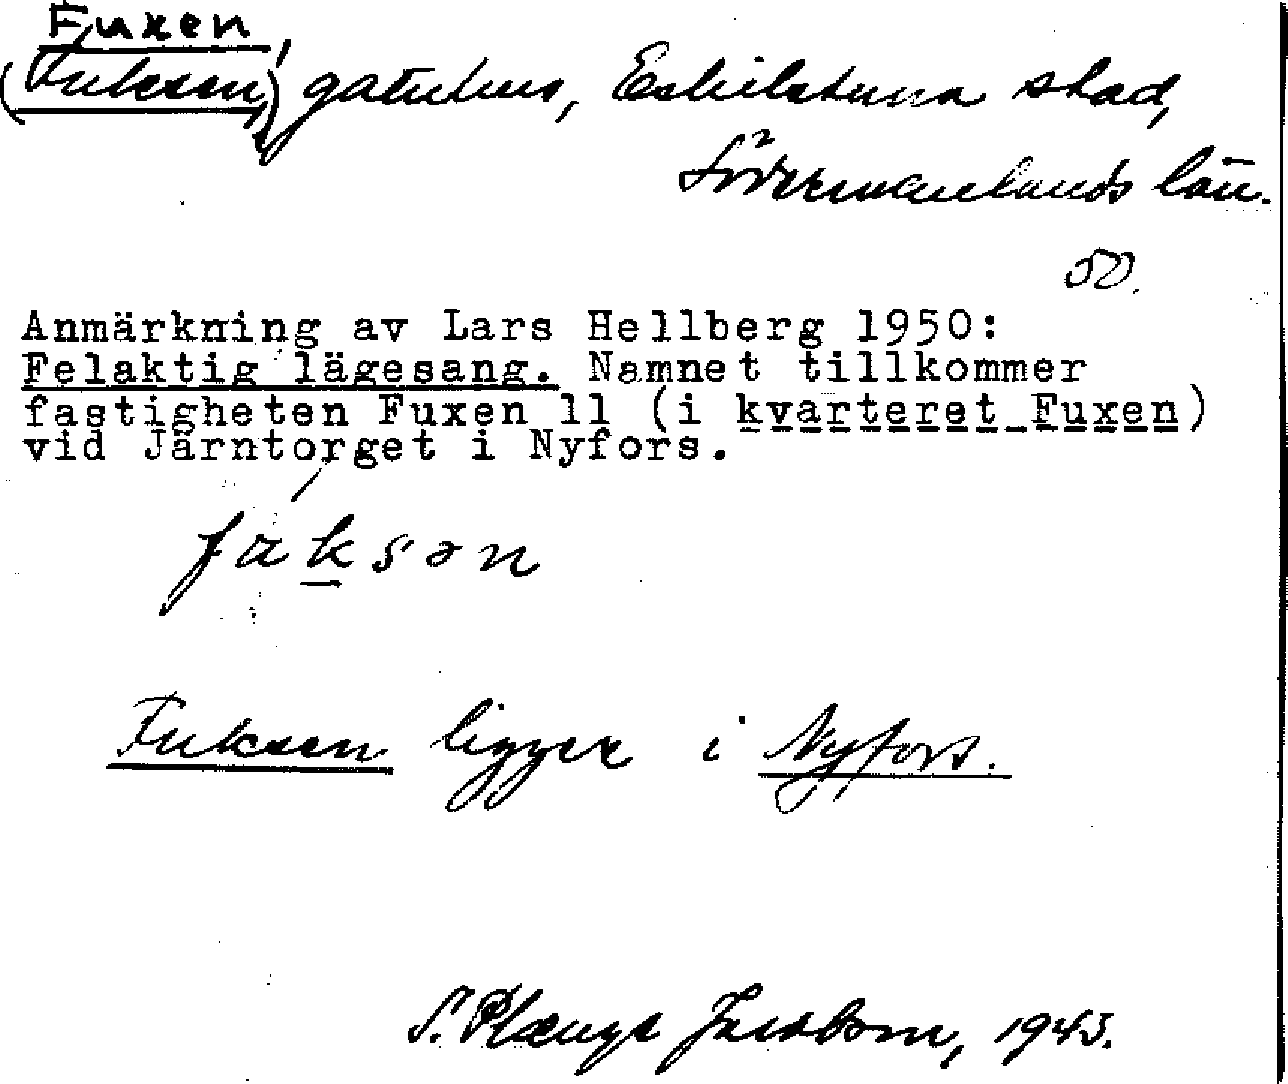 Fuxen,
(Fuksen,) gatuhus, Eskilstuna stad,
Södermanlands län.
50.
Anmärkning av Lars Hellberg 1950:
Felaktig lägesang. Namnet tillkommer
fastigheten Fuxen 11 (i kvarteret Fuxen)
vid Järntorget i Nyfors.
Fuksen ligger i Nyfors.
S. Plænge Jacobson, 1943.